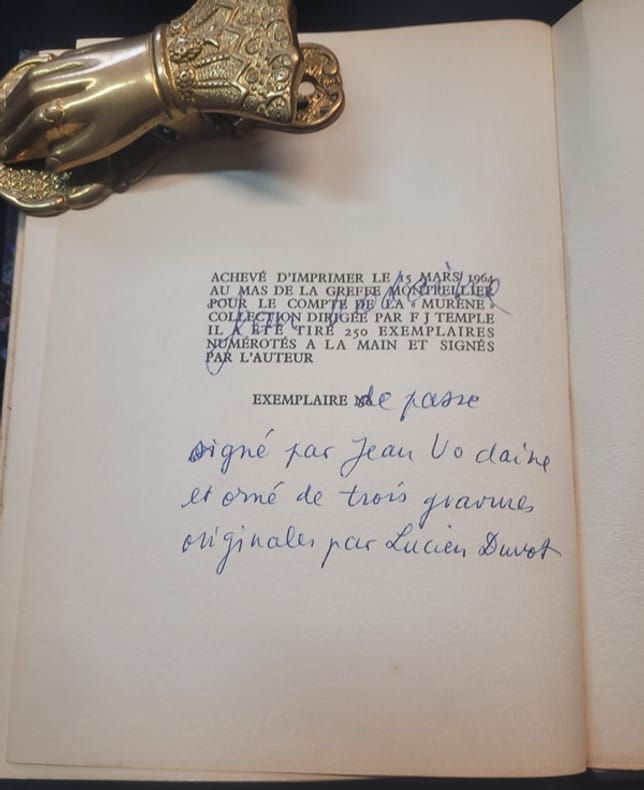 ACHEVÉ D'IMPRIMER LE 15 MARS 1964
AU MAS DE LA GREFFE MONTPELLIER
POUR LE COMPTE DE LA « MURÈNE »
COLLECTION DIRIGÉE PAR F J TEMPLE
IL A ÉTÉ TIRÉ 250 EXEMPLAIRES
NUMÉROTÉS A LA MAIN ET SIGNÉS
PAR L'AUTEUR
Jean Vodaine
EXEMPLAIRE No de passe
signé par Jean Vodaine
et orné de trois gravures
originales par Lucien Duvot